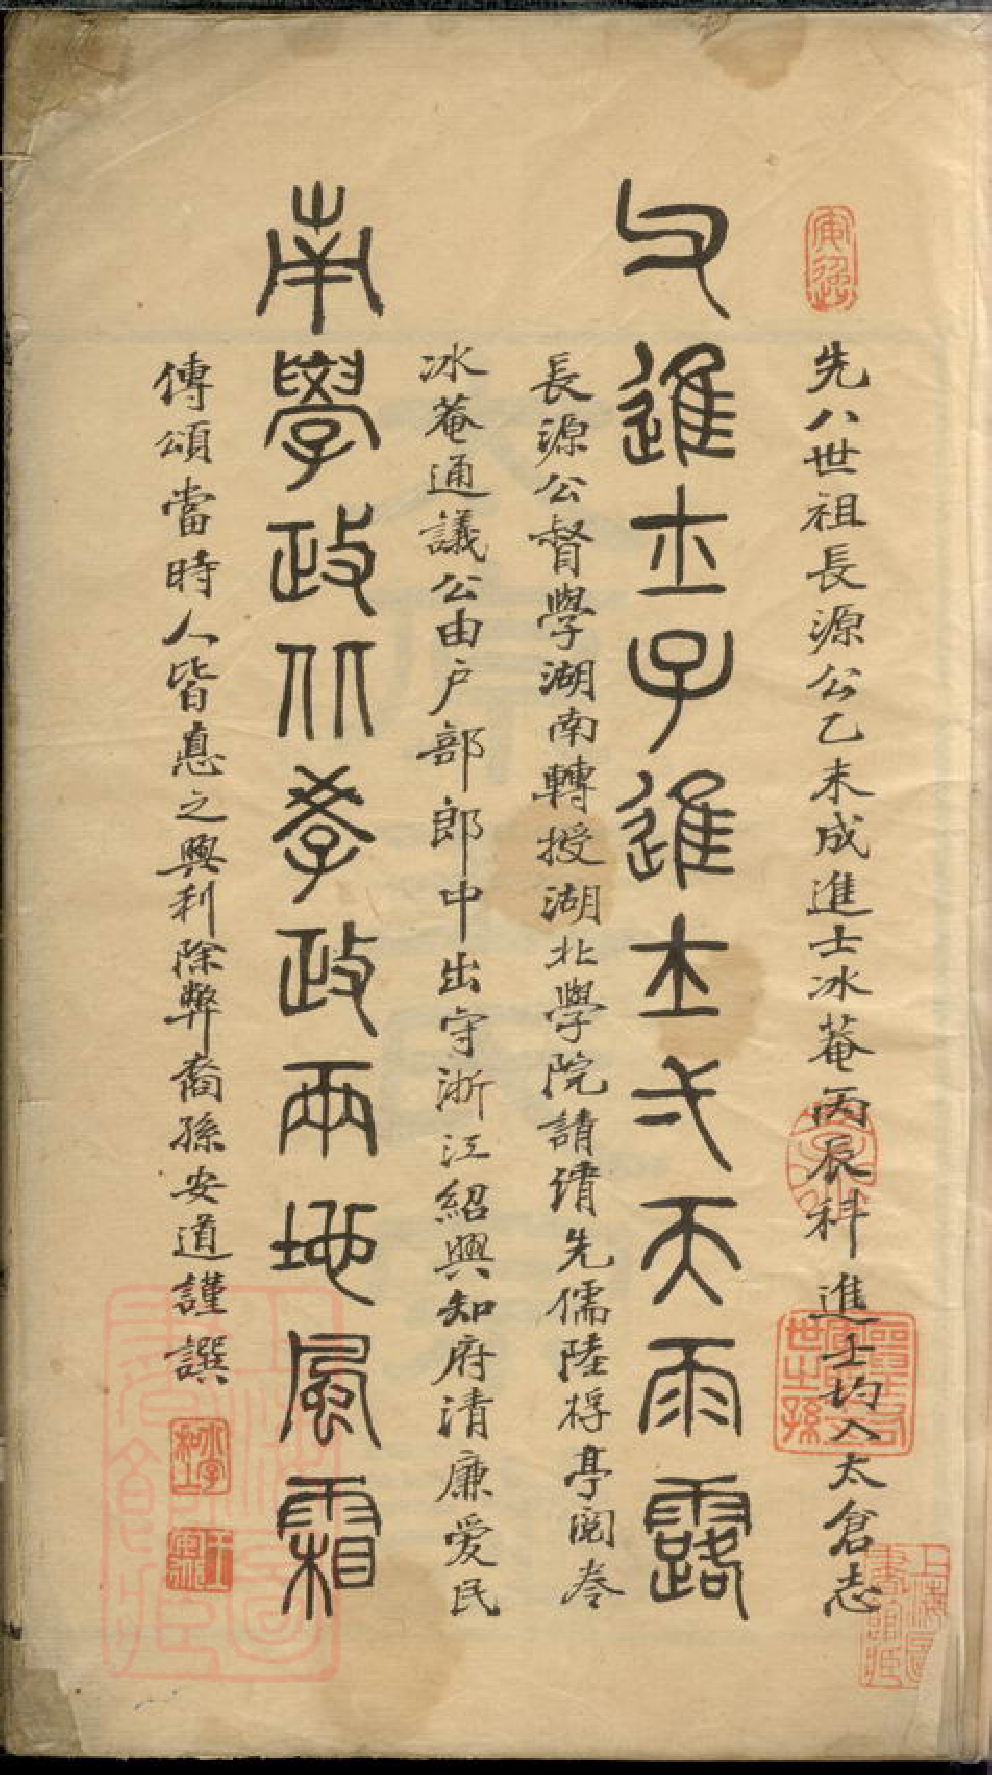 先八世祖長源公乙未成進士冰菴丙辰科進士均入太倉志
父進士子進士弌天雨露
長源公督學湖南轉授湖北學院請績先儒陸桴亭閱卷
冰菴通議公由户部郎中出守浙江紹興知府清廉愛民
南學政北學政兩地風霜
傳頌當時人皆惪之興利除弊裔孫安道謹譔
上海圖書館藏
上海圖書館藏